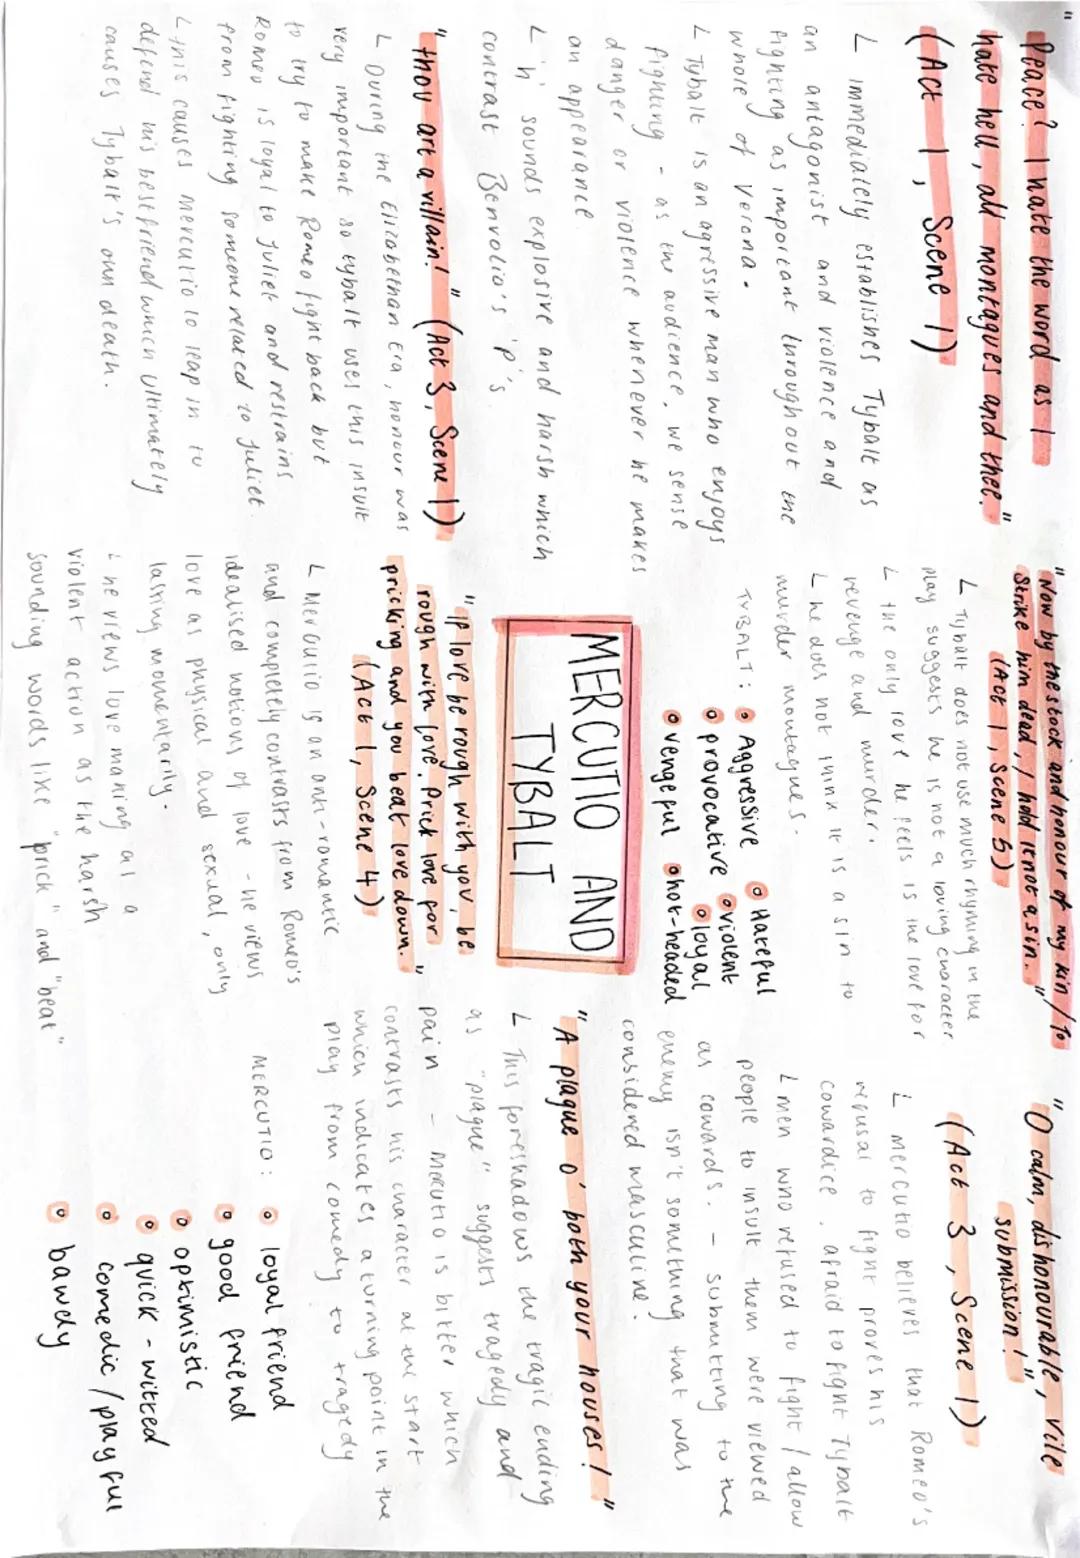 "Peace? I hate the word as I
hate hell, all montagues and thee."
(Act 1, Scene 1)
L immediately establishes Tybalt as
an antagonist and violence and
fighting as important throughout the
whole of Verona.
L Tybalt is an agressive man who enjoys
fighting - as the audience, we sense
danger or violence whenever he makes
an appearance
L 'h' sounds explosive and harsh which
contrast Benvolio's 'p's.
"thou art a villain!" (Act 3, Scene 1)
L During the Elizabethan era, honour was
very important so tybalt uses this insult
to try to make Romeo fight back but
Romeo is loyal to Juliet and restrains
from fighting someone related to Juliet.
L this causes mercutio to leap in to
defend his best friend which ultimately
causes Tybalt's own death.
"Now by the stock and honour of my kin / To
Strike him dead, I hold it not a sin."
(Act 1, Scene 5)
L Tybalt does not use much rhyming in the
play suggests he is not a loving character
L the only love he feels is the love for
revenge and murder.
L he does not think it is a sin to
murder montagues.
TYBALT:
Aggressive
Hateful
provocative
violent
loyal
vengeful
hot-headed
MERCUTIO AND
TYBALT
"If love be rough with you, be
rough with love. Prick love for
pricking and you beat love down."
(Act 1, Scene 4)
L Mercutio is an anti-romantic
and completely contrasts from Romeo's
idealised notions of love - he views
love as physical and sexual, only
lasting momentarily.
L he views love making as a
violent action as the harsh
sounding words like "prick" and "beat"
"O calm, dishonourable, vile
submission!"
(Act 3, Scene 1)
L mercutio believes that Romeo's
refusal to fight proves his
cowardice, afraid to fight Tybalt
L men who refused to fight / allow
people to insult them were viewed
as cowards. - submitting to the
enemy isn't something that was
considered masculine.
"A plague o' both your houses!"
L This foreshadows the tragic ending
as "plague" suggests tragedy and
pain - Mercutio is bitter which
contrasts his character at the start
which indicates a turning point in the
play from comedy to tragedy
MERCUTIO:
loyal friend
good friend
optimistic
quick-witted
comedic / playful
bawdy